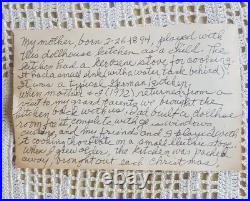 My mother born 2-26-1894, played with
this dollhouse kitchen as a child. The
kitchen had a kerosene stove for cooking.
It had a small sink (with a water tank behind).
It was a typical German kitchen.
When mother & I (1927) returned from a
visit to my grandparents we brought the
kitchen back with us. Dad built a dollhouse
room for it, complete with
and my friends and I played with
it cooking chocolate on a small electric stove.
When I grew older, the kitchen was packed
away, brought out each Christmas.